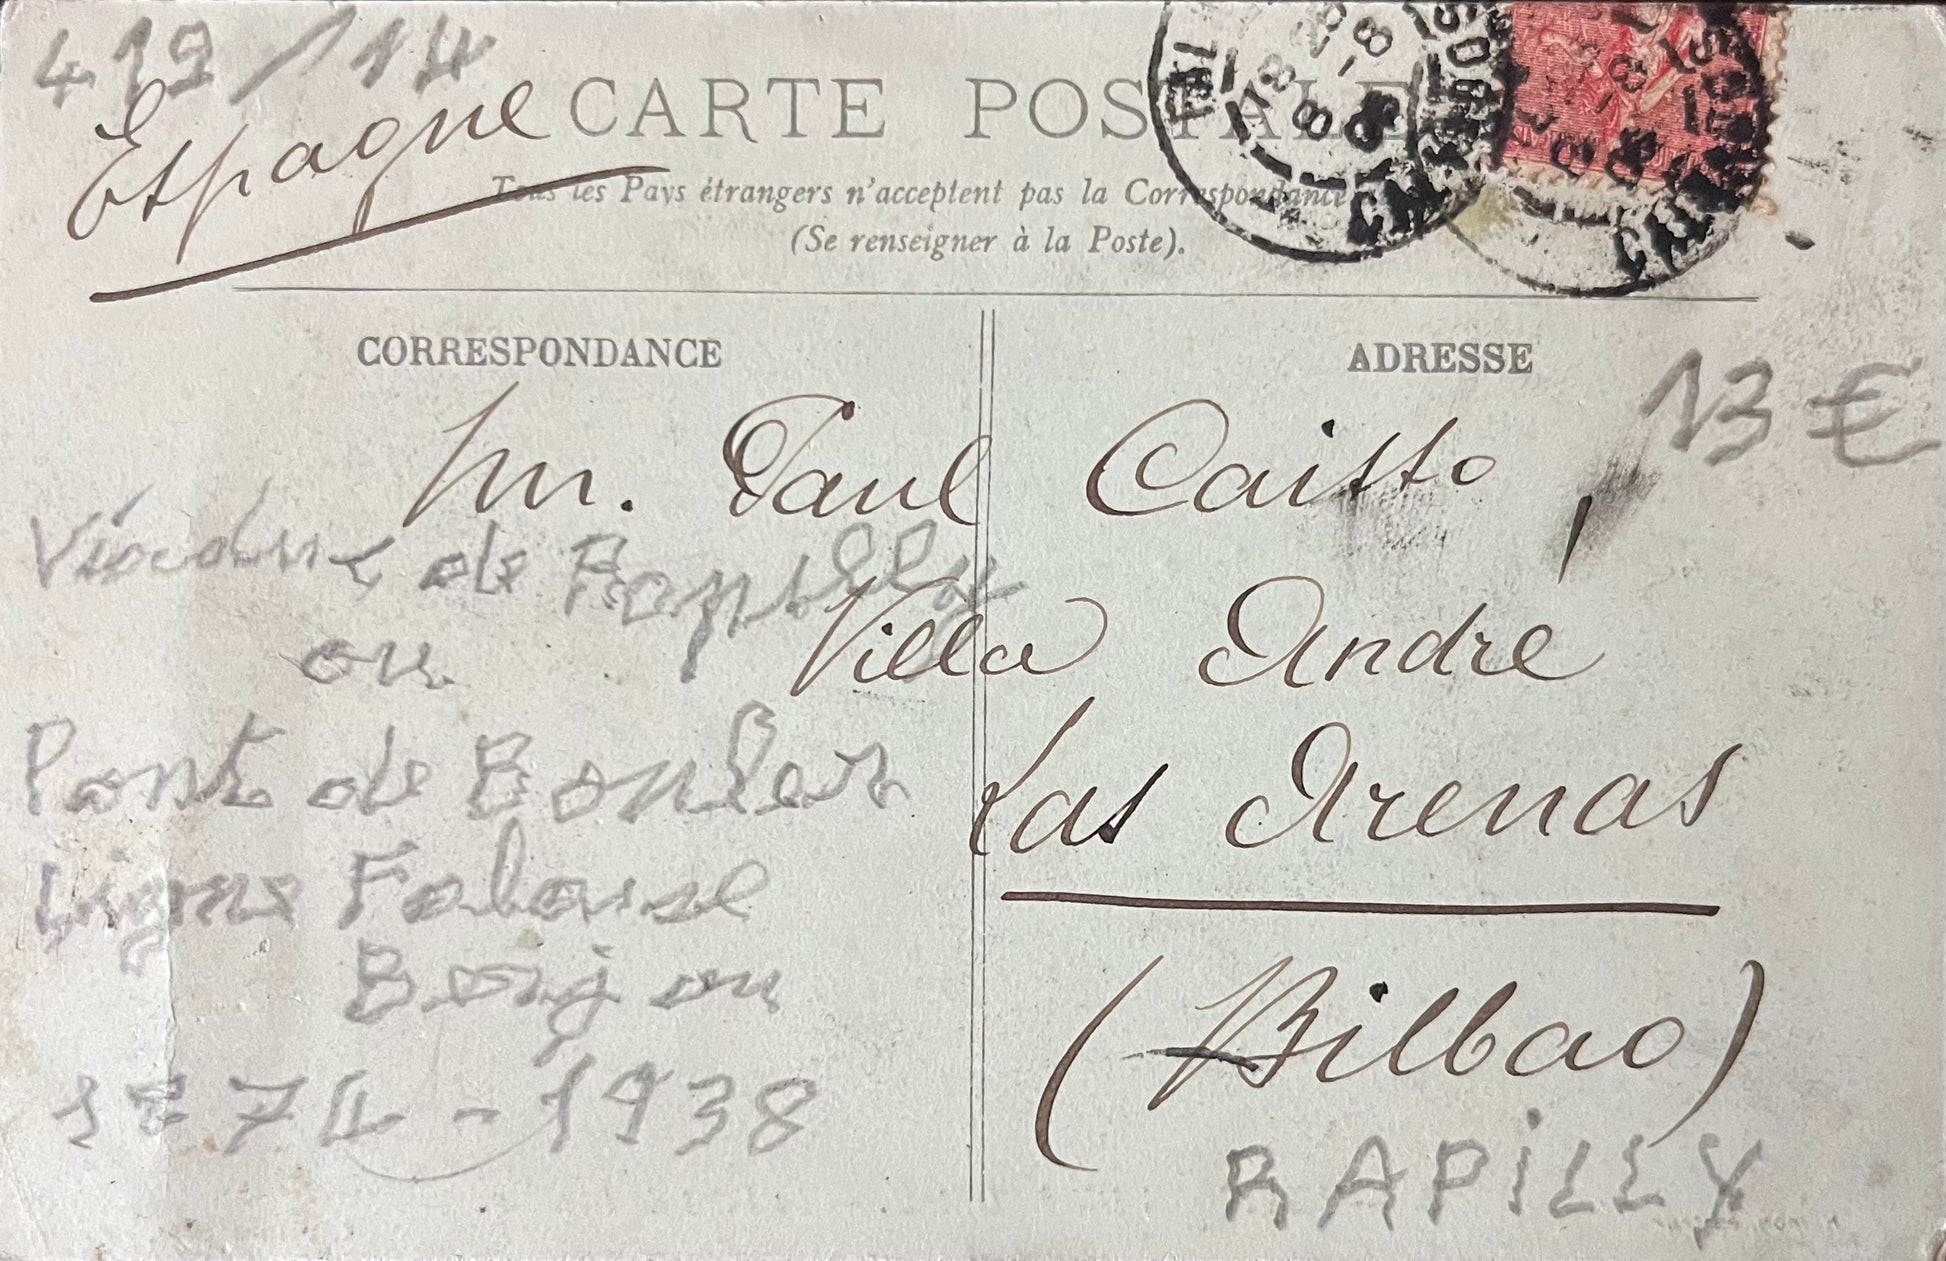 412/14
Espagne
CARTE POSTALE
Tous les Pays étrangers n'acceptent pas la Correspondance
(Se renseigner à la Poste).
CORRESPONDANCE
ADRESSE
13 €
M. Paul Caisso,
Villa André
Las Arenas
(Bilbao)
RAPILLY
Viaduc de Rapilly
ou
Pont de
Ligne Falaise
1874-1938